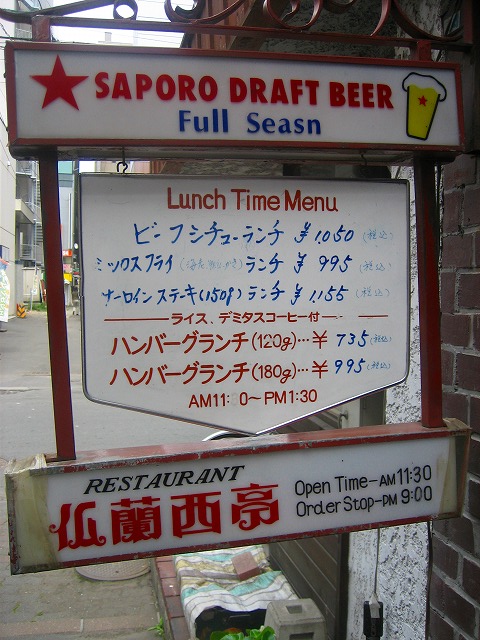 SAPORO DRAFT BEER
Full Seasn
Lunch Time Menu
ビーフシチューランチ ¥1,050 (税込)
ミックスフライ ランチ ¥995 (税込)
サーロインステーキ(150g) ランチ ¥1,155 (税込)
ライス、デミタスコーヒー付
ハンバーグランチ(120g)…¥735 (税込)
ハンバーグランチ(180g)…¥995 (税込)
AM11: 0～PM1:30
RESTAURANT
仏蘭西亭
Open Time–AM 11:30
Order Stop–PM 9:00